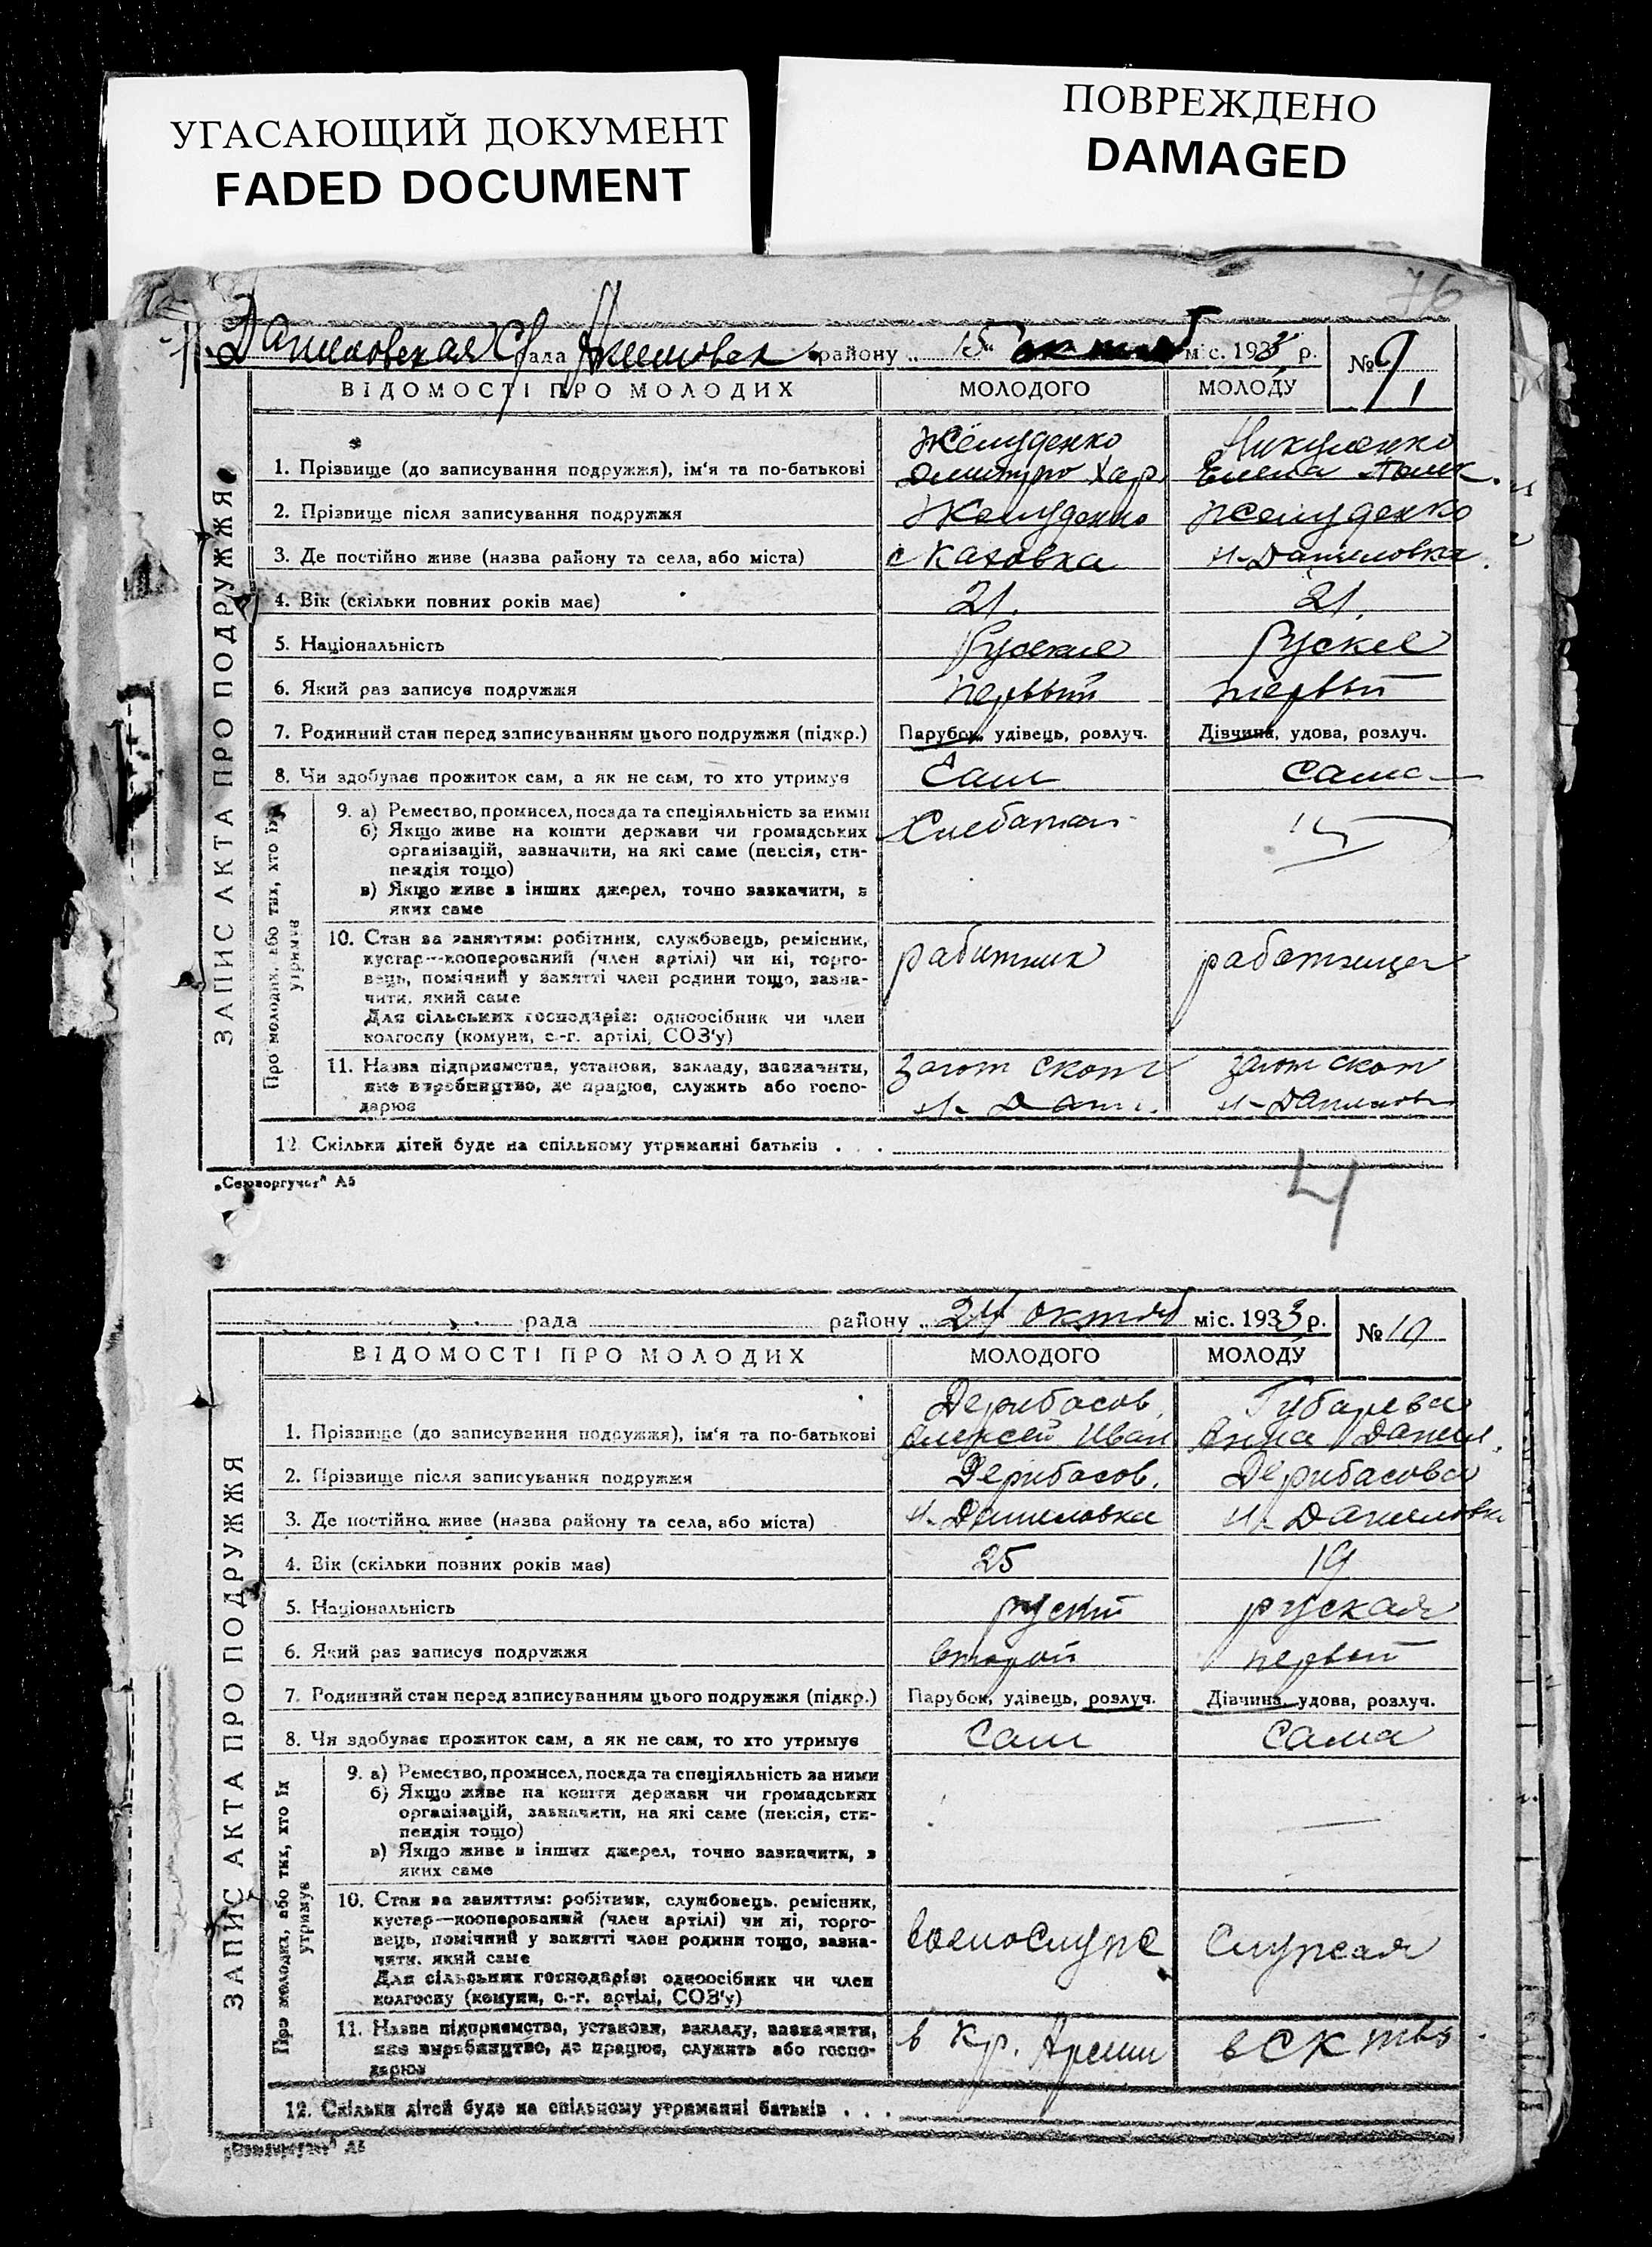 УГАСАЮЩИЙ ДОКУМЕНТ
FADED DOCUMENT
ПОВРЕЖДЕНО
DAMAGED
76
рада району „ 15 міс. 1933 р. № 9
ВІДОМОСТІ ПРО МОЛОДИХ МОЛОДОГО МОЛОДУ
ЗАПИС АКТА ПРО ПОДРУЖЖЯ
Желуденко Никуленко
1. Прізвище (до записування подружжя), ім'я та по-батькові Дмитро Хар. Елена
2. Прізвище після записування подружжя Желуденко Желуденко
3. Де постійно живе (назва району та села, або міста) с Каховка н-Даниловка
4. Вік (скільки повних років має) 21. 21.
5. Національність Руские Руские
6. Який раз записує подружжя первый первый
7. Родинний стан перед записуванням цього подружжя (підкр.) Парубок, удівець, розлуч. Дівчина, удова, розлуч.
8. Чи здобуває прожиток сам, а як не сам, то хто утримує Сам сама
Про молодих, або тих, хто їх утримує
9. а) Ремество, промисел, посада та спеціяльність за ними
б) Якщо живе на кошти держави чи громадських
організацій, зазначити, на які саме (пенсія, сти-
пендія тощо)
в) Якщо живе з інших джерел, точно зазначити, з
яких саме
10. Стан за заняттям: робітник, службовець, ремісник,
кустар—кооперований (член артілі) чи ні, торго-
вець, помічний у занятті член родини тощо, зазна-
чити, який саме
Для сільських господарів: одноосібник чи член
колгоспу (комуни, с.-г. артілі, СОЗ'у)
работник работница
11. Назва підприємства, установи, закладу, зазначити,
яке виробництво, де працює, служить або госпо-
дарює
Загот скот Загот скот
н- Дани. н-Данилов
12. Скільки дітей буде на спільному утриманні батьків . . .
„Союзоргучет" А5
4
рада району „ 24 октяб міс. 1933 р. № 10
ВІДОМОСТІ ПРО МОЛОДИХ МОЛОДОГО МОЛОДУ
ЗАПИС АКТА ПРО ПОДРУЖЖЯ
Дерибасов Губарева
1. Прізвище (до записування подружжя), ім'я та по-батькові Алексей Иван Анна Данил.
2. Прізвище після записування подружжя Дерибасов. Дерибасова
3. Де постійно живе (назва району та села, або міста) н-Даниловка н-Даниловка
4. Вік (скільки повних років має) 25 19
5. Національність руский руская
6. Який раз записує подружжя второй первый
7. Родинний стан перед записуванням цього подружжя (підкр.) Парубок, удівець, розлуч. Дівчина, удова, розлуч.
8. Чи здобуває прожиток сам, а як не сам, то хто утримує Сам Сама
Про молодих, або тих, хто їх утримує
9. а) Ремество, промисел, посада та спеціяльність за ними
б) Якщо живе на кошти держави чи громадських
організацій, зазначити, на які саме (пенсія, сти-
пендія тощо)
в) Якщо живе з інших джерел, точно зазначити, з
яких саме
10. Стан за заняттям: робітник, службовець, ремісник,
кустар—кооперований (член артілі) чи ні, торго-
вець, помічний у занятті член родини тощо, зазна-
чити, який саме
Для сільських господарів: одноосібник чи член
колгоспу (комуни, с.-г. артілі, СОЗ'у)
военослуж служая
11. Назва підприємства, установи, закладу, зазначити,
яке виробництво, де працює, служить або госпо-
дарює
в Кр. Армии
12. Скільки дітей буде на спільному утриманні батьків . . .
„Союзоргучет" А5